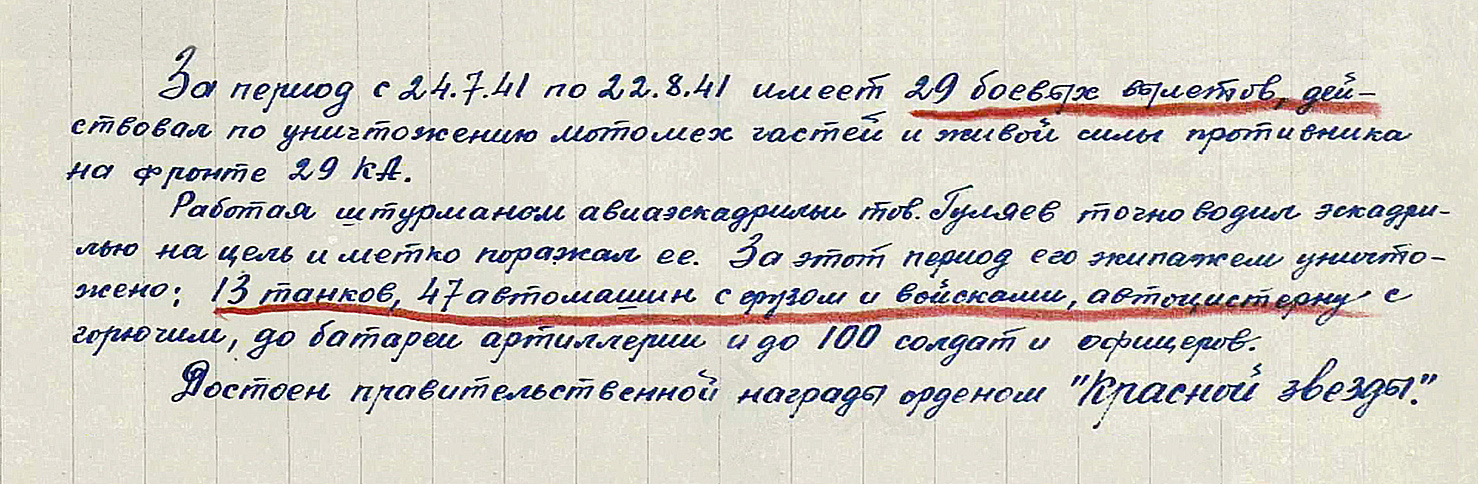 За период с 24.7.41 по 22.8.41 имеет 29 боевых вылетов, дей-
ствовал по уничтожению мотомех частей и живой силы противника
на фронте 29 КА.
Работая штурманом авиаэскадрильи тов. Гуляев точно водил эскадри-
лью на цель и метко поражал ее. За этот период его экипажем уничто-
жено: 13 танков, 47 автомашин с грузом и войсками, автоцистерну с
горючим, до батареи артиллерии и до 100 солдат и офицеров.
Достоен правительственной награды орденом "Красной звезды".